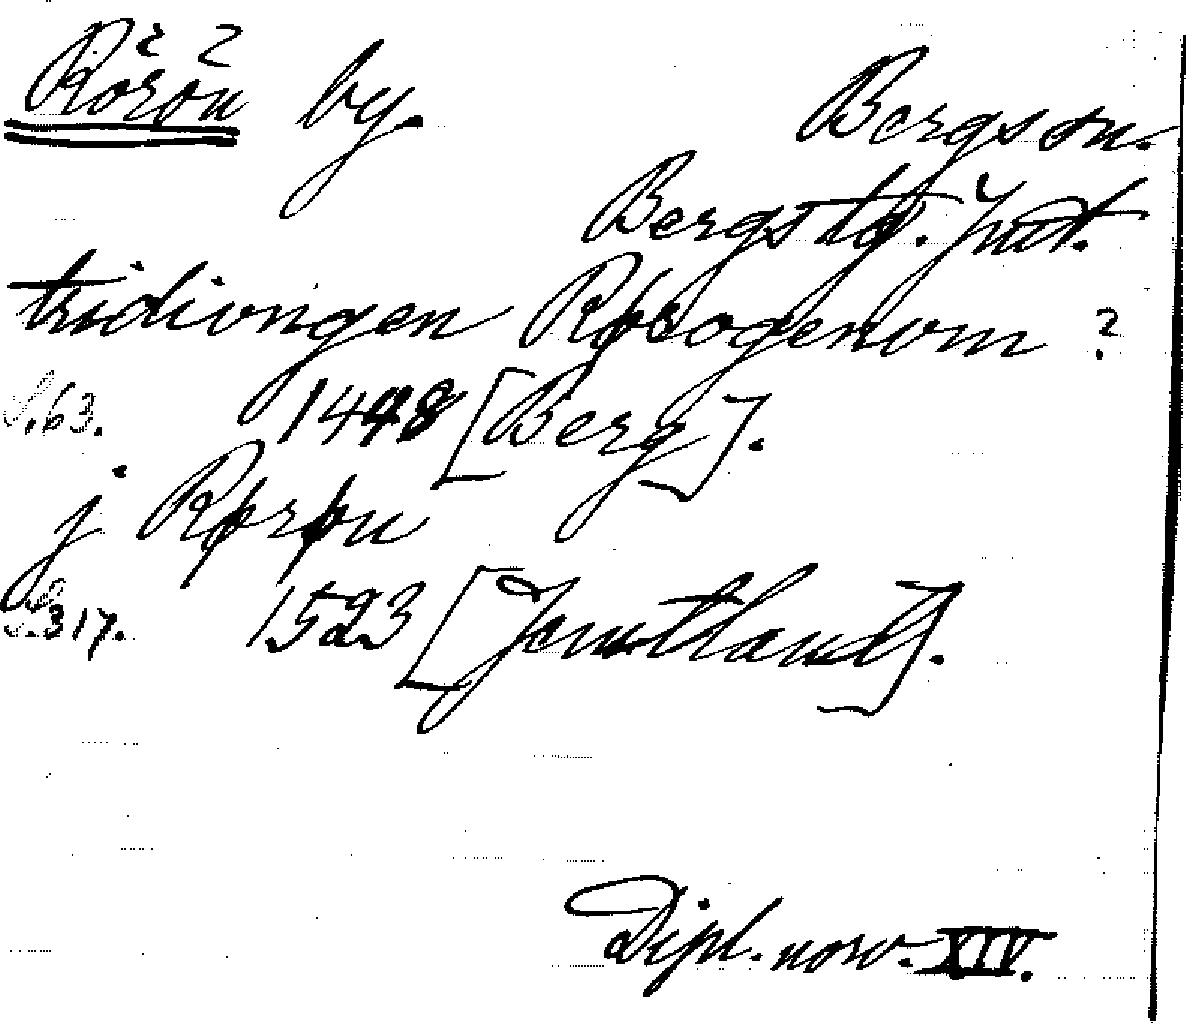 Rörön by. Bergs sn.
Bergs tg. Jmt.
tridiungen Rørogenom ?
S. 63. 1448 [Berg].
j Rørøn
S. 317. 1523 [Jemtland].
Dipl. norv. XIV.